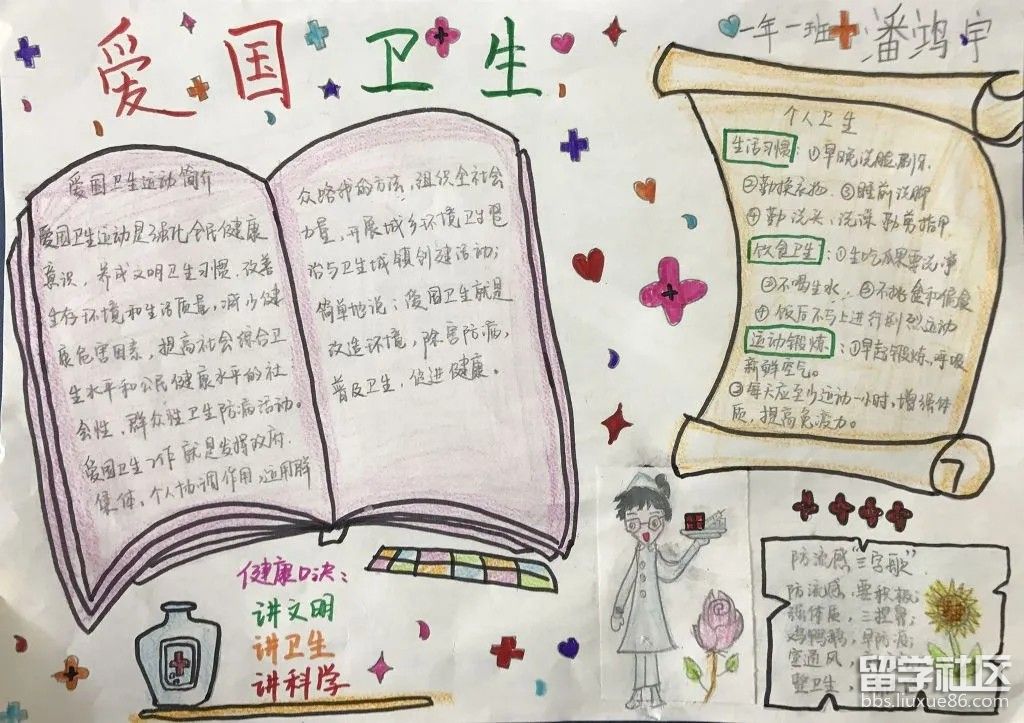 爱国卫生
一年一班 潘鸿宇
爱国卫生运动简介
爱国卫生运动是强化全民健康
意识，养成文明卫生习惯，改善
生存环境和生活质量，减少健
康危害因素，提高社会综合卫
生水平和公民健康水平的社
会性、群众性卫生防病活动。
爱国卫生工作就是发挥政府、
集体、个人协调作用，运用群
众路线的方法，组织全社会
力量，开展城乡环境卫生整
治与卫生城镇创建活动；
简单地说：爱国卫生就是
改造环境，除害防病，
普及卫生，促进健康。
个人卫生
生活习惯：①早晚洗脸刷牙
②勤换衣物 ③睡前洗脚
④勤洗头、洗澡 勤剪指甲
饮食卫生：①生吃瓜果要洗净
②不喝生水 ③不挑食和偏食
④饭后不马上进行剧烈运动
运动锻炼：①早起锻炼，呼吸
新鲜空气。
②每天应至少运动一小时，增强体
质，提高免疫力。
健康口决：
讲文明
讲卫生
讲科学
防流感“三字歌”
防流感，要积极；
强体质，
鸡鸭鹅，早防疫；
室通风，
整卫生，
留学社区
bbs.liuxue86.com